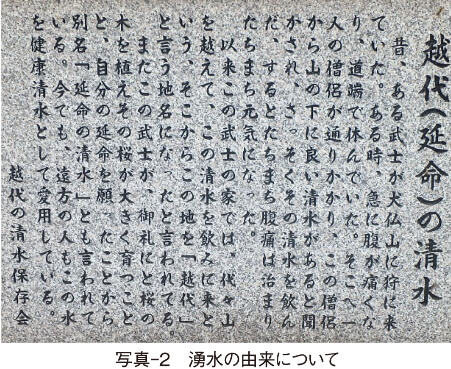 越代(延命)の清水
昔、ある武士が犬仏山に狩に来
ていた。ある時、急に腹が痛くな
り、道端で休んでいた。そこへ一
人の僧侶が通りかかり、この僧侶
から山の下に良い清水があると聞
かされ、さっそくその清水を飲ん
だ、するとたちまち腹痛は治まり
たちまち元気になった。
以来この武士の家では、代々山
を越えて、この清水を飲みに来と
いう、そこからこの地を「越代」
と言う地名になったと言われてる。
またこの武士が、御礼にと桜の
木を植えその桜が大きく育つこと
と、自分の延命を願ったことから
別名「延命の清水」とも言われて
いる。今でも、遠方の人もこの水
を健康清水として愛用している。
越代の清水保存会
写真-2 湧水の由来について